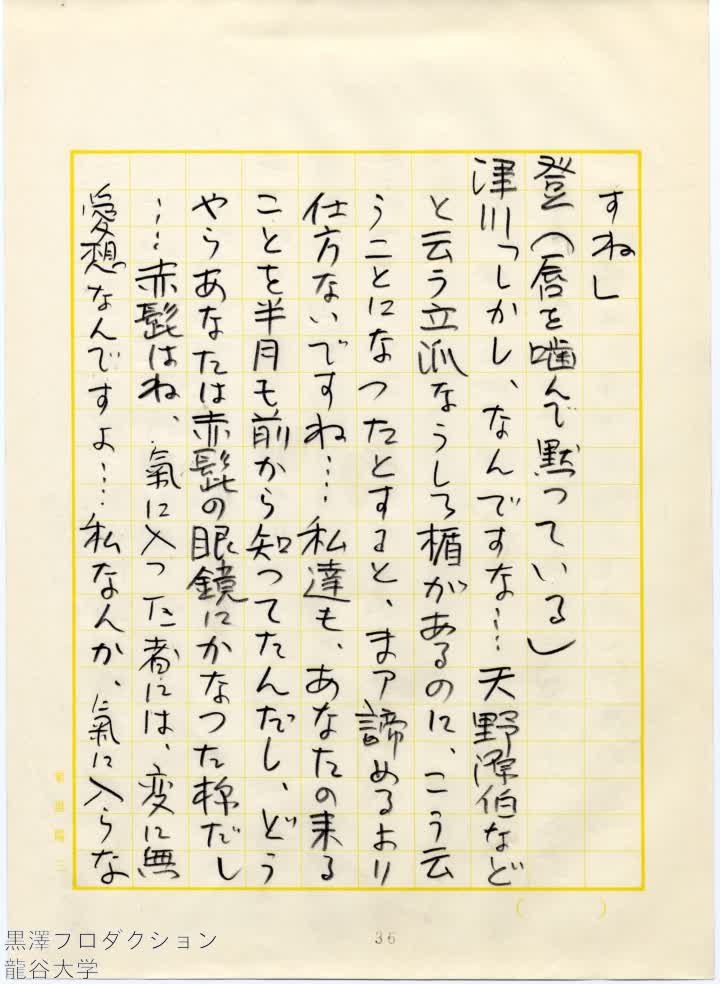 すね」
登（唇を噛んで黙っている）
津川「しかし、なんですな…天野源伯など
と云う立派なうしろ楯があるのに、こう云
うことになったとすると、まア諦めるより
仕方ないですね…私達も、あなたの来る
ことを半月も前から知ってたんだし、どう
やらあなたは赤髭の眼鏡にかなった様だし
…赤髭はね、氣に入った者には、変に無
愛想なんですよ…私なんか、氣に入らな
36
黒澤プロダクション
龍谷大学